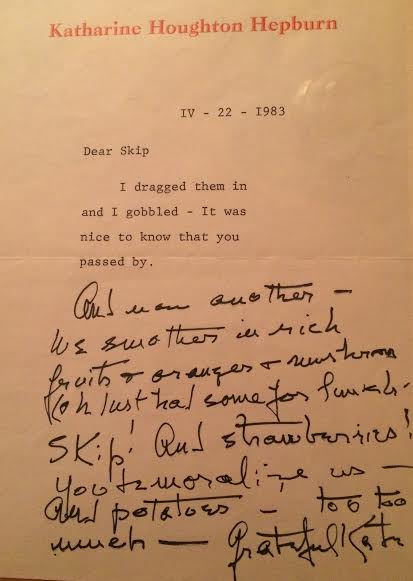 Katharine Houghton Hepburn
IV - 22 - 1983
Dear Skip
I dragged them in
and I gobbled - It was
nice to know that you
passed by.
And now another -
We smother in rich
fruits + oranges + mushrooms
(oh Just had some for lunch -
Skip! And strawberries!
You demoralize us -
And potatoes - too too
much - Grateful Kate